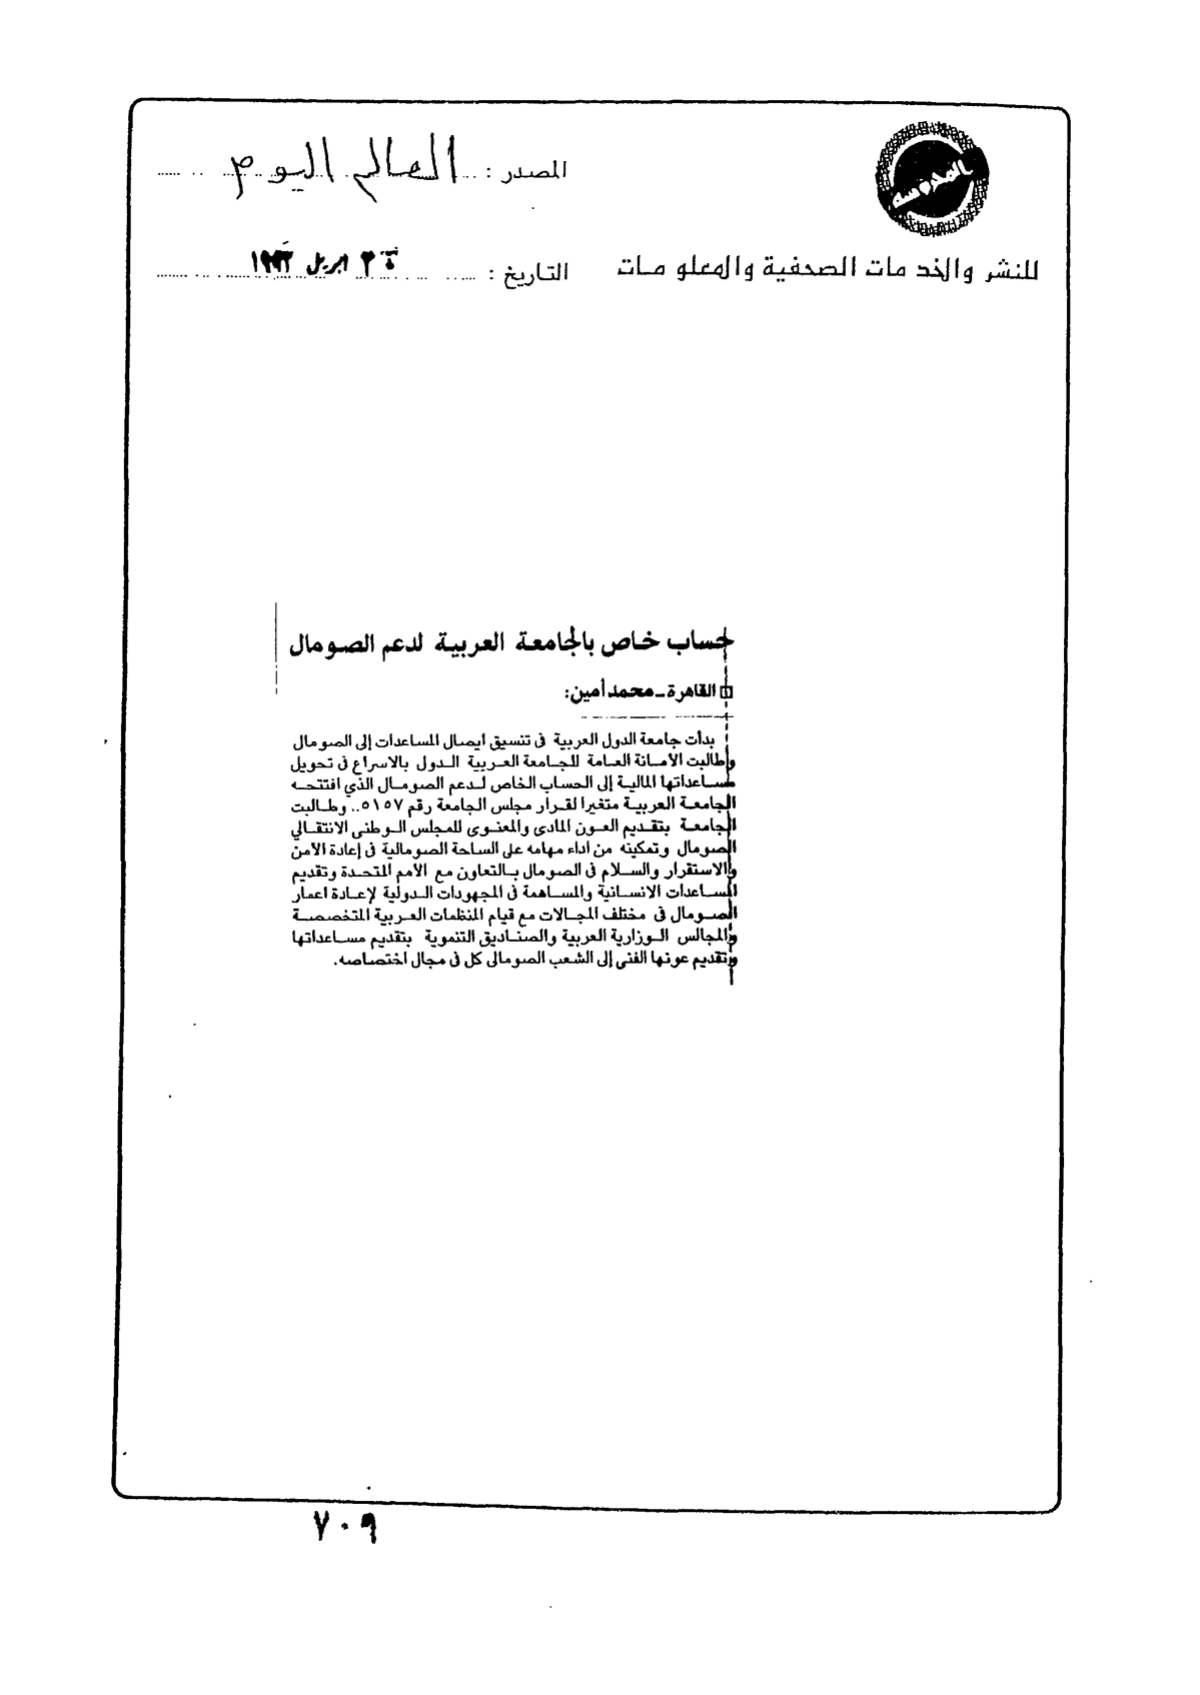 المصدر : العالم اليوم
للنشر والخدمات الصحفية والمعلومات
التاريخ : ابريل ١٩٩٣
حساب خاص بالجامعة العربية لدعم الصومال
القاهرة ـ محمد أمين:
بدأت جامعة الدول العربية فى تنسيق ايصال المساعدات إلى الصومال
وطالبت الأمانة العامة للجامعة العربية الدول بالاسراع فى تحويل
مساعداتها المالية إلى الحساب الخاص لدعم الصومال الذي افتتحه
الجامعة العربية متغيرا لقرار مجلس الجامعة رقم ٥١٥٧.. وطالبت
الجامعة بتقديم العون المادى والمعنوى للمجلس الوطنى الانتقالي
الصومال وتمكينه من اداء مهامه على الساحة الصومالية فى إعادة الأمن
والاستقرار والسلام فى الصومال بالتعاون مع الأمم المتحدة وتقديم
المساعدات الانسانية والمساهمة فى المجهودات الدولية لإعادة اعمار
الصومال فى مختلف المجالات مع قيام المنظمات العربية المتخصصة
والمجالس الوزارية العربية والصناديق التنموية بتقديم مساعداتها
وتقديم عونها الفنى إلى الشعب الصومالى كل فى مجال اختصاصه.
٧٠٩